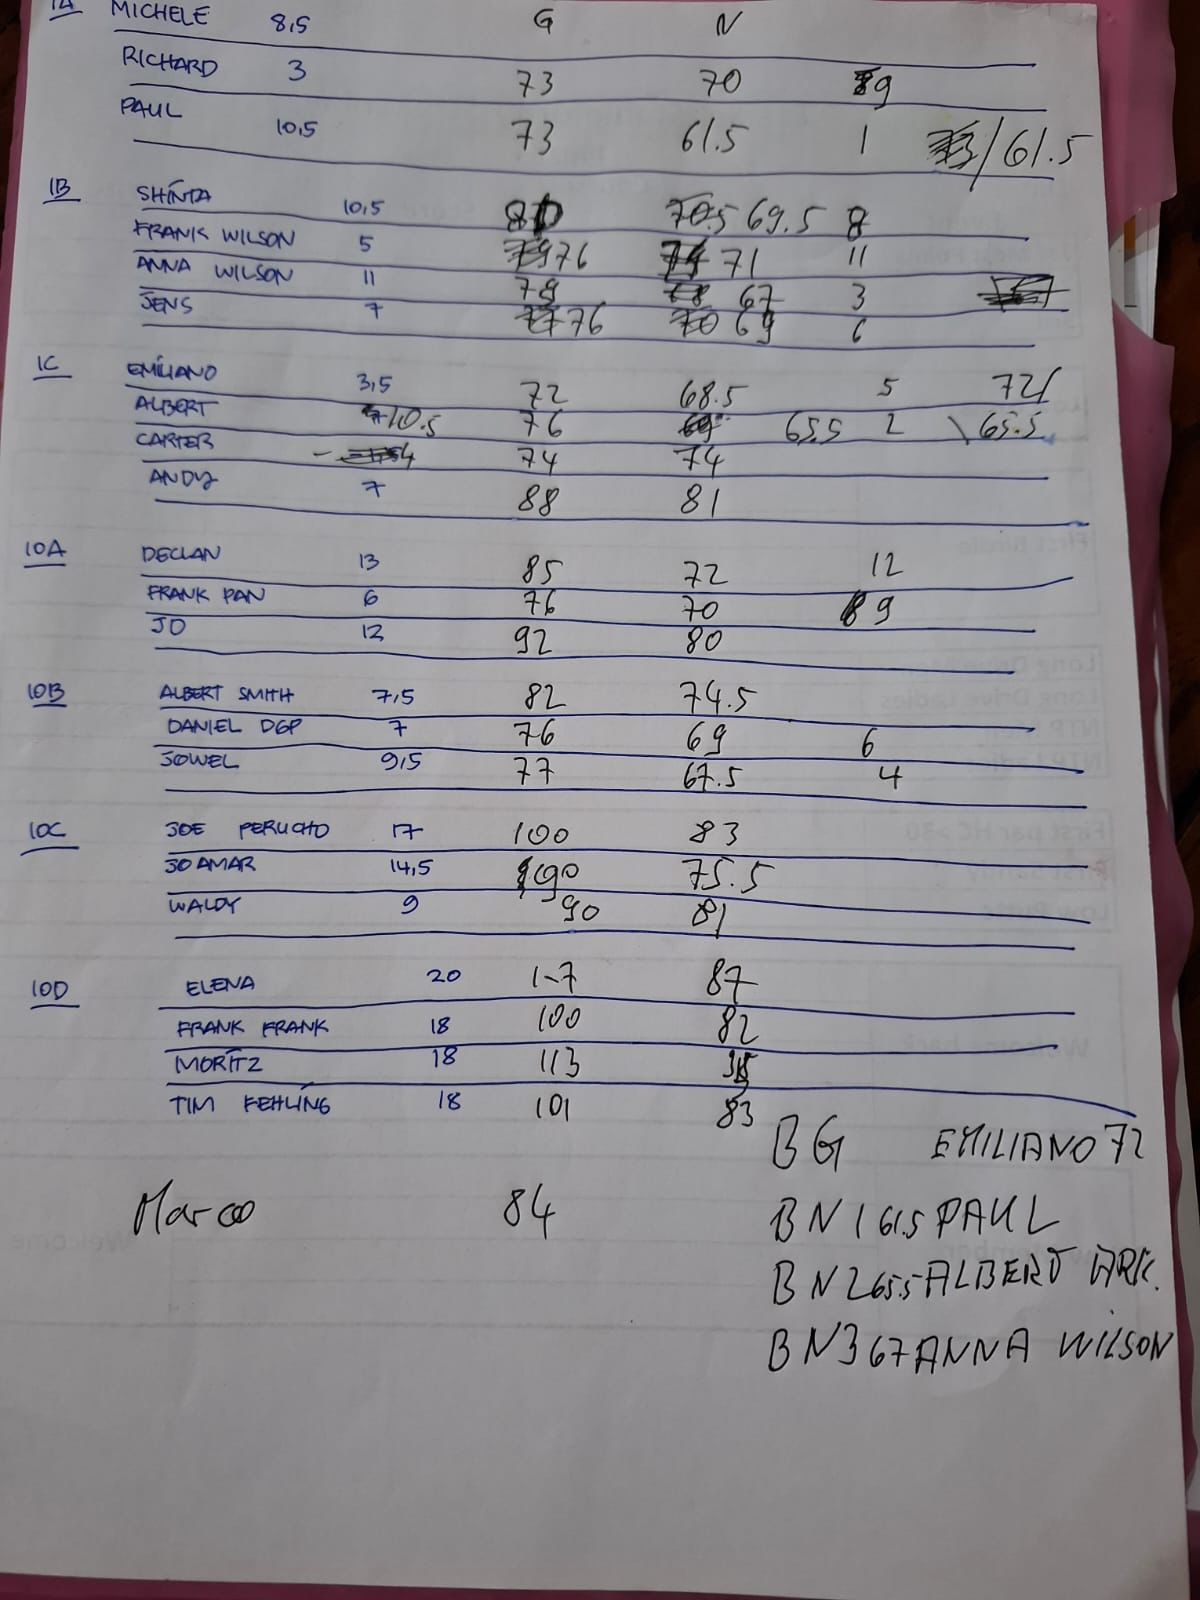 1A MICHELE 8,5 G N
RICHARD 3 73 70 9
PAUL 10,5 73 61.5 1 /61.5
1B SHINTA 10,5 80 70.5 69.5 8
FRANK WILSON 5 76 71 11
ANNA WILSON 11 78 67 3
JENS 7 77 76 70 69 6
1C EMILIANO 3,5 72 68.5 5 72/
ALBERT 10.5 76 65.5 2 \65.5
CARTER 74 74
ANDY 7 88 81
10A DECLAN 13 85 72 12
FRANK PAN 6 76 70 9
JO 12 92 80
10B ALBERT SMITH 7,5 82 74.5
DANIEL DGP 7 76 69 6
JOWEL 9,5 77 67.5 4
10C JOE PERUCHO 17 100 83
JOAMAR 14,5 90 75.5
WALDY 9 90 81
10D ELENA 20 1-7 87
FRANK FRANK 18 100 82
MORITZ 18 113
TIM FEHLING 18 101 83
BG EMILIANO 72
Marco 84
BN1 61.5 PAUL
BN2 65.5 ALBERT ARK.
BN3 67 ANNA WILSON